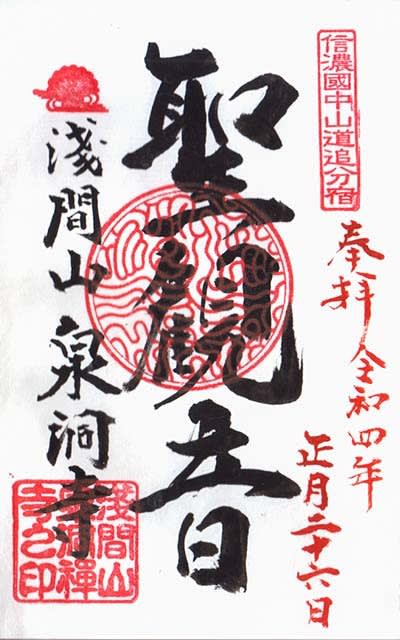 信濃國中山道追分宿
奉拝 令和四年
正月二十六日
聖観音
淺間山 泉洞寺
淺間山
泉洞禪
寺之印